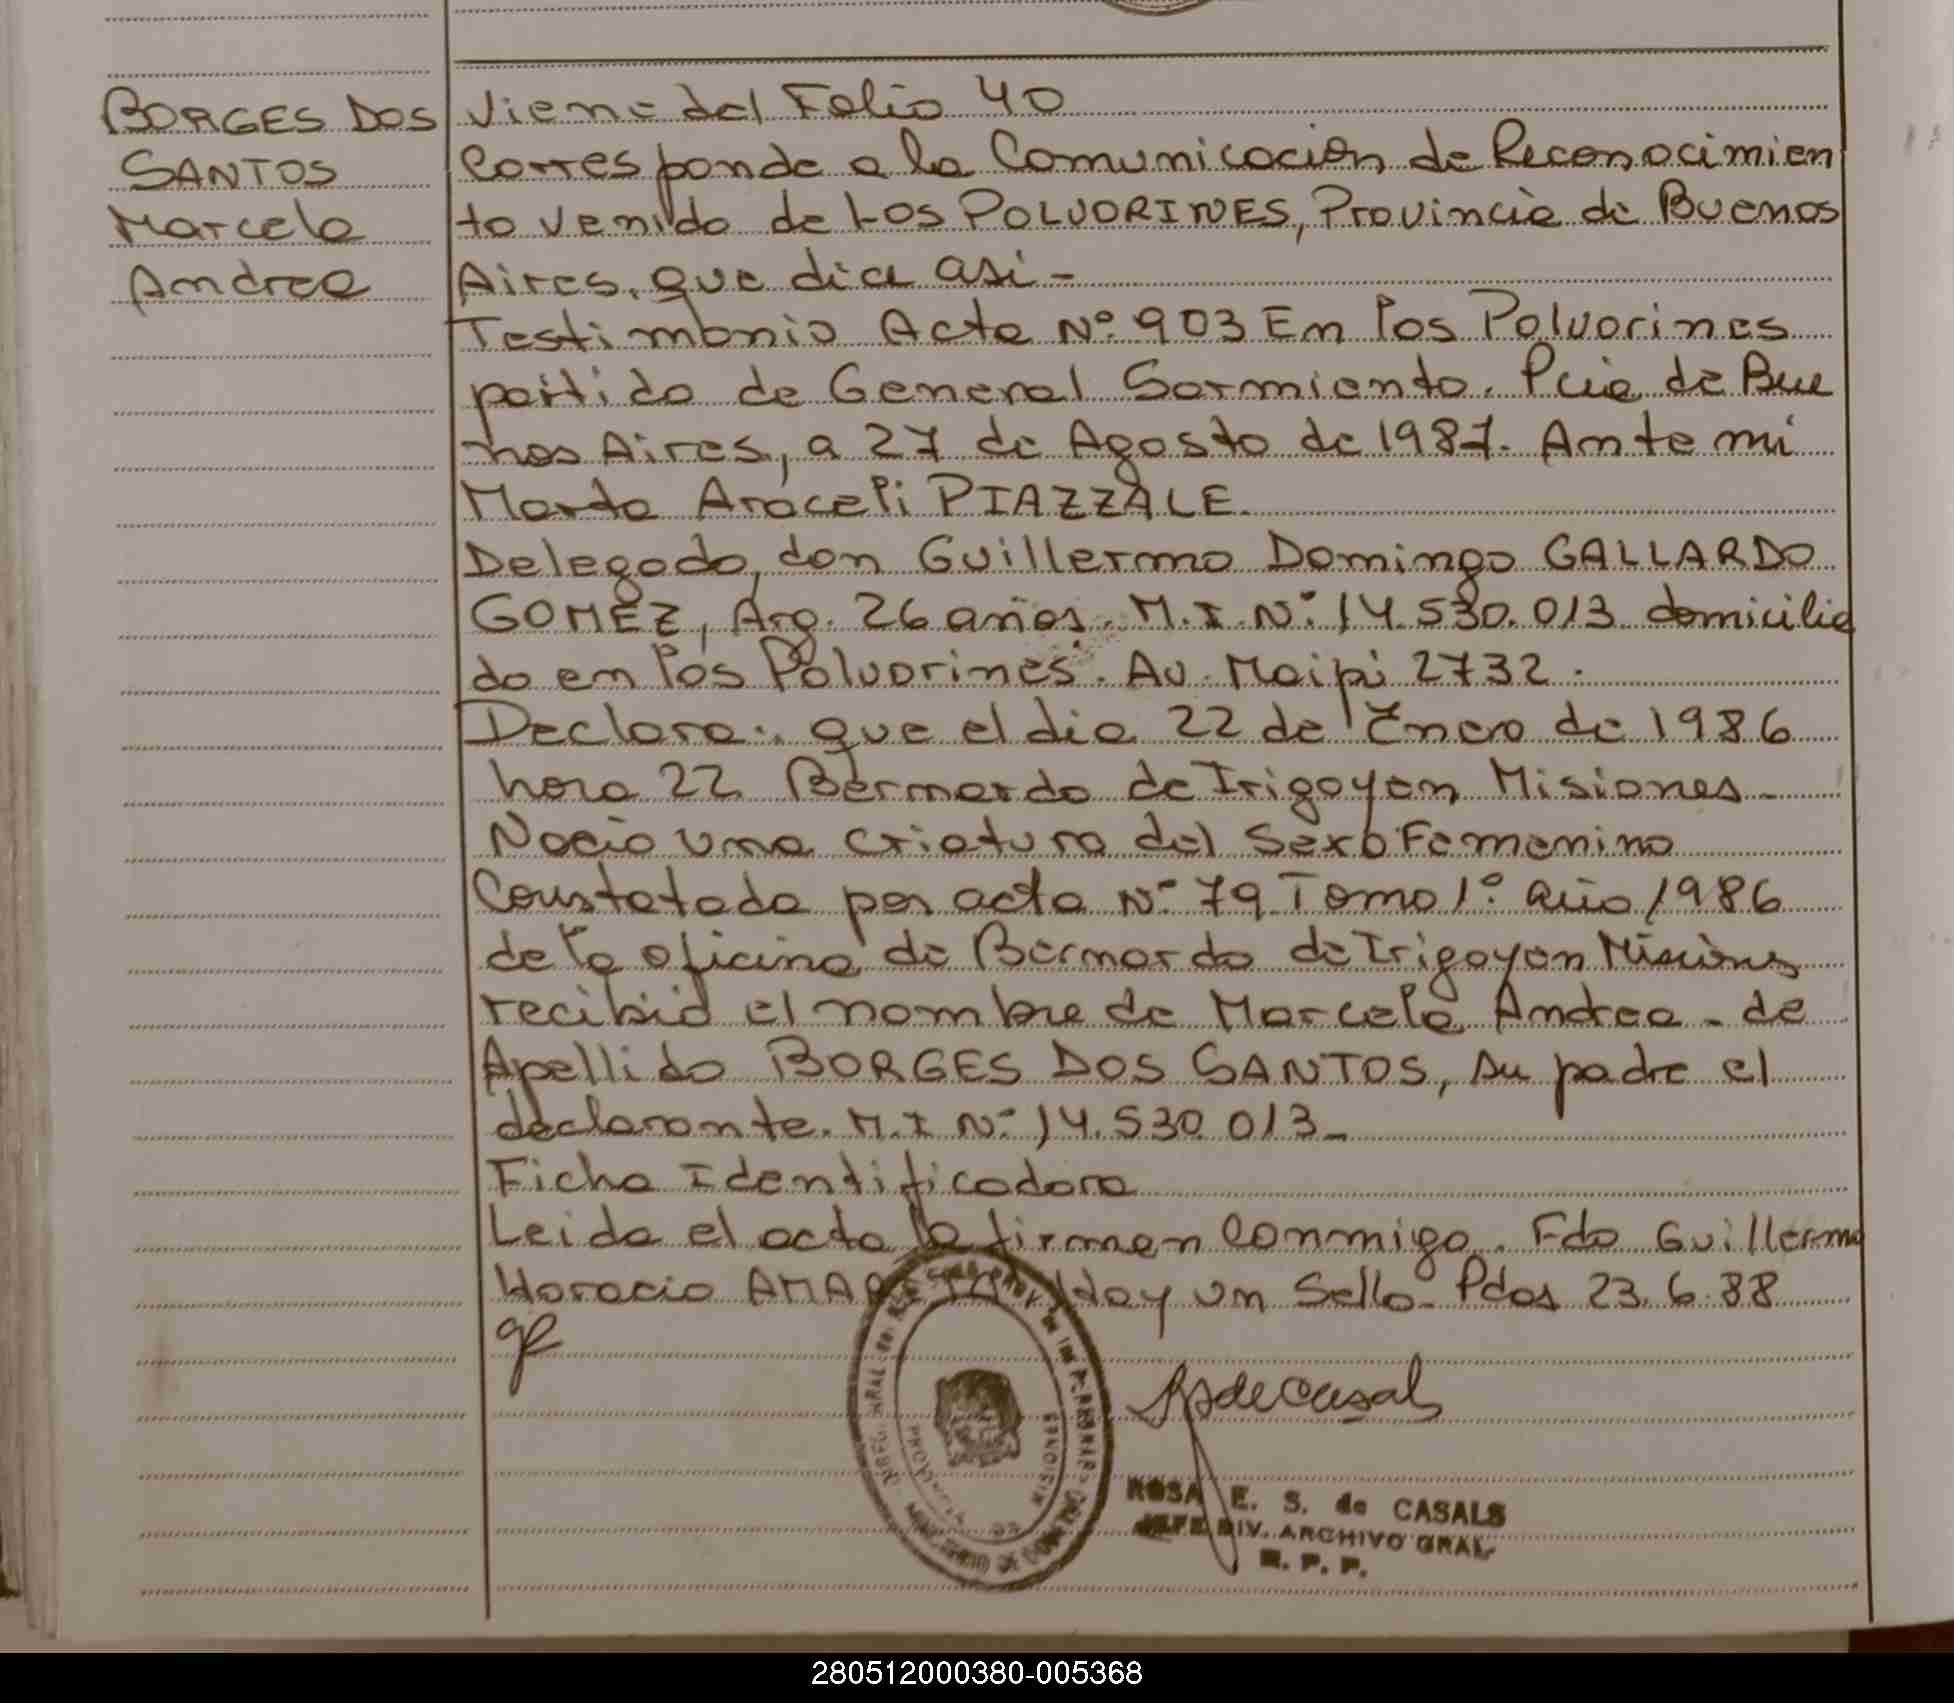 BORGES DOS
SANTOS
Marcela
Andrea
Viene del Folio 40
Corresponde a la Comunicación de Reconocimien
to venido de LOS POLVORINES, Provincia de Buenos
Aires, que dice así-
Testimonio Acta Nº 903 En los Polvorines
partido de General Sarmiento. Pcia de Bue
nos Aires, a 27 de Agosto de 1987. Ante mi
Marta Araceli PIAZZALE.
Delegado, don Guillermo Domingo GALLARDO
GOMEZ, Arg. 26 años. M.I. Nº 14.530.013 domicilia
do en los Polvorines. Av. Maipú 2732.
Declara: que el dia 22 de Enero de 1986
hora 22 Bernardo de Irigoyen Misiones-
Nació una criatura del Sexo Femenino
Constatada por acta Nº 79 Tomo 1º año 1986
de la oficina de Bernardo de Irigoyen Misiones
recibió el nombre de Marcela Andrea - de
Apellido BORGES DOS SANTOS, su padre el
declarante. M.I Nº 14.530.013-
Ficha Identificadora
Leida el acta la firman conmigo. Fdo Guillermo
Horacio Hay un Sello- Pdas 23.6.88
ROSA E. S. de CASALS
JEFE DIV. ARCHIVO GRAL.
R. P. P.
280512000380-005368